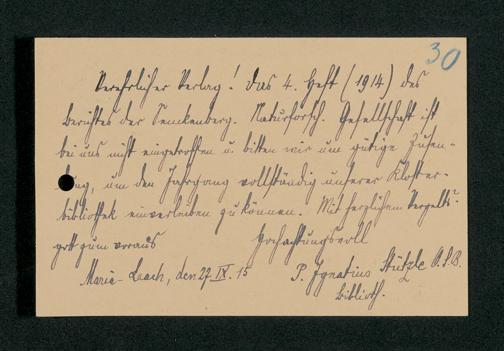 30
Verehrlicher Verlag! Das 4. Heft (1914) des
Berichtes der Senckenberg. Naturforsch. Gesellschaft ist
bei uns nicht eingetroffen u. bitten wir um gütige Zusen-
dung, um den Jahrgang vollständig unserer Kloster-
bibliothek einverleiben zu können. Mit herzlichem Vergelt's
gott zum voraus Hochachtungsvoll
Maria-Laach, den 27. IX. 15 P. Ignatius Stützle O.S.B.
Biblioth.